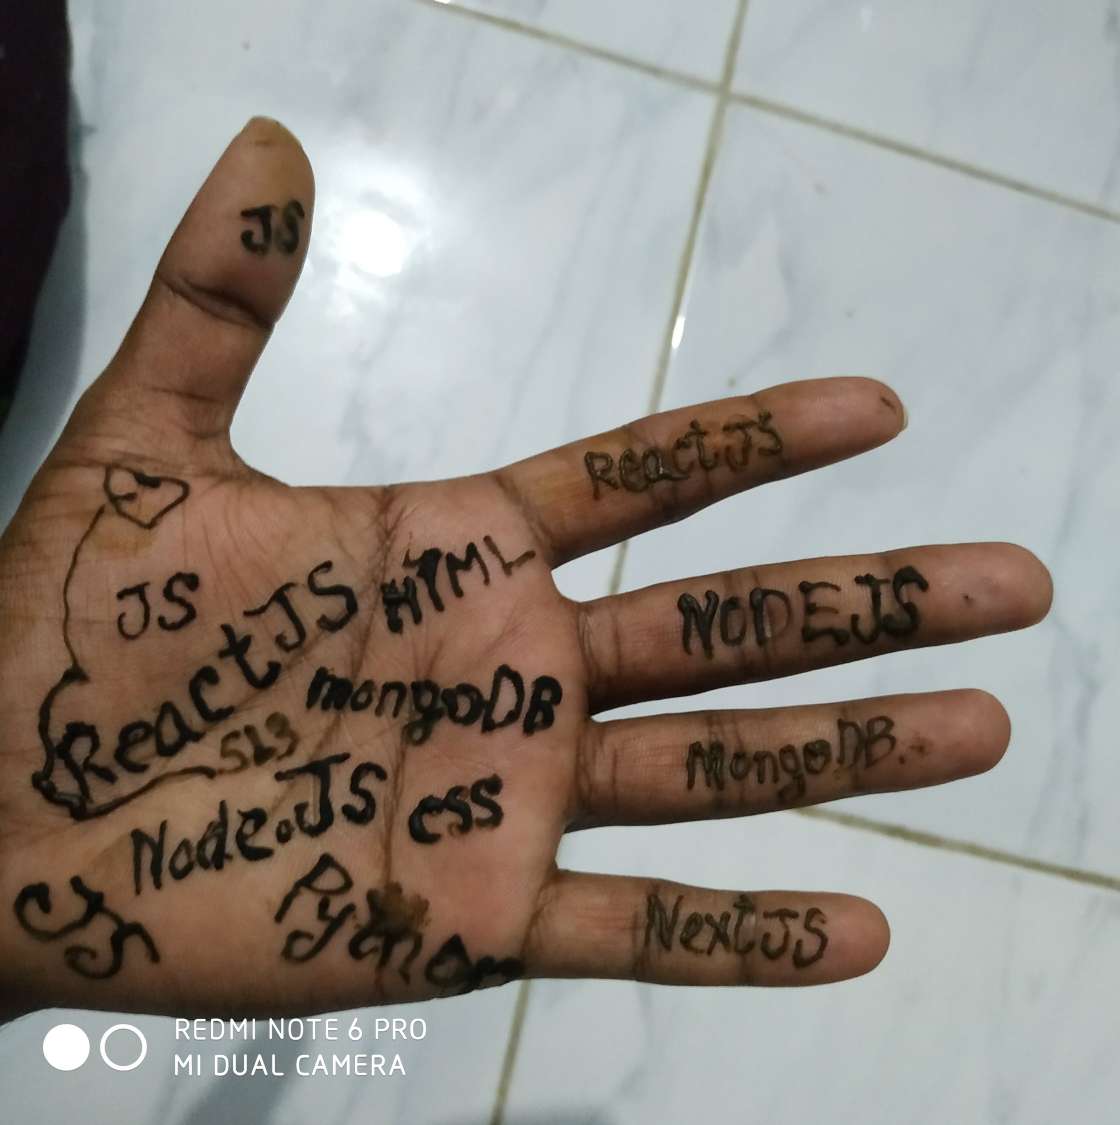 JS
ReactJS
NODEJS
MongoDB.
NextJS
JS
HTML
ReactJS
mongoDB
Node.JS
css
Python
REDMI NOTE 6 PRO
MI DUAL CAMERA